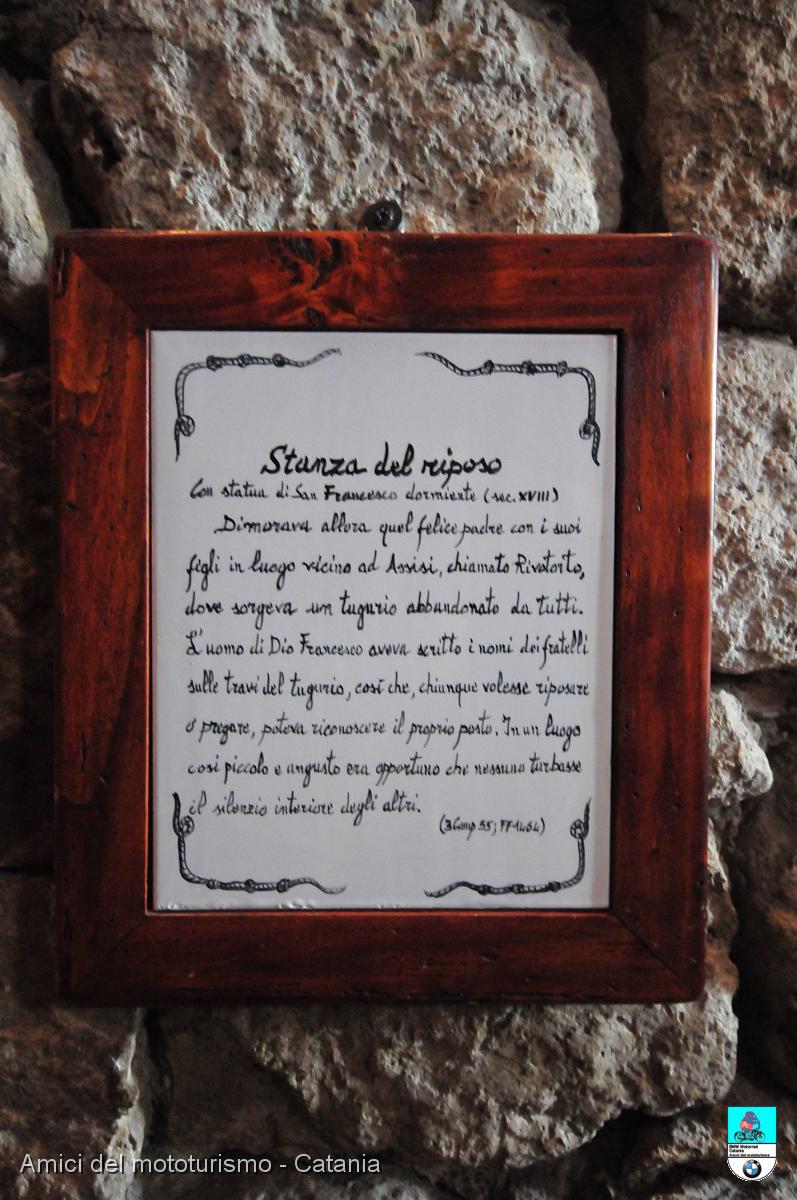 Stanza del riposo
Con statua di San Francesco dormiente (sec. XVIII)
Dimorava allora quel felice padre con i suoi
figli in luogo vicino ad Assisi, chiamato Rivotorto,
dove sorgeva un tugurio abbandonato da tutti.
L'uomo di Dio Francesco aveva scritto i nomi dei fratelli
sulle travi del tugurio, così che, chiunque volesse riposare
o pregare, poteva riconoscere il proprio posto. In un luogo
così piccolo e angusto era opportuno che nessuno turbasse
il silenzio interiore degli altri.
(3Comp 55; FF1464)
Amici del mototurismo - Catania
BMW Motorrad
Catania
Amici del mototurismo